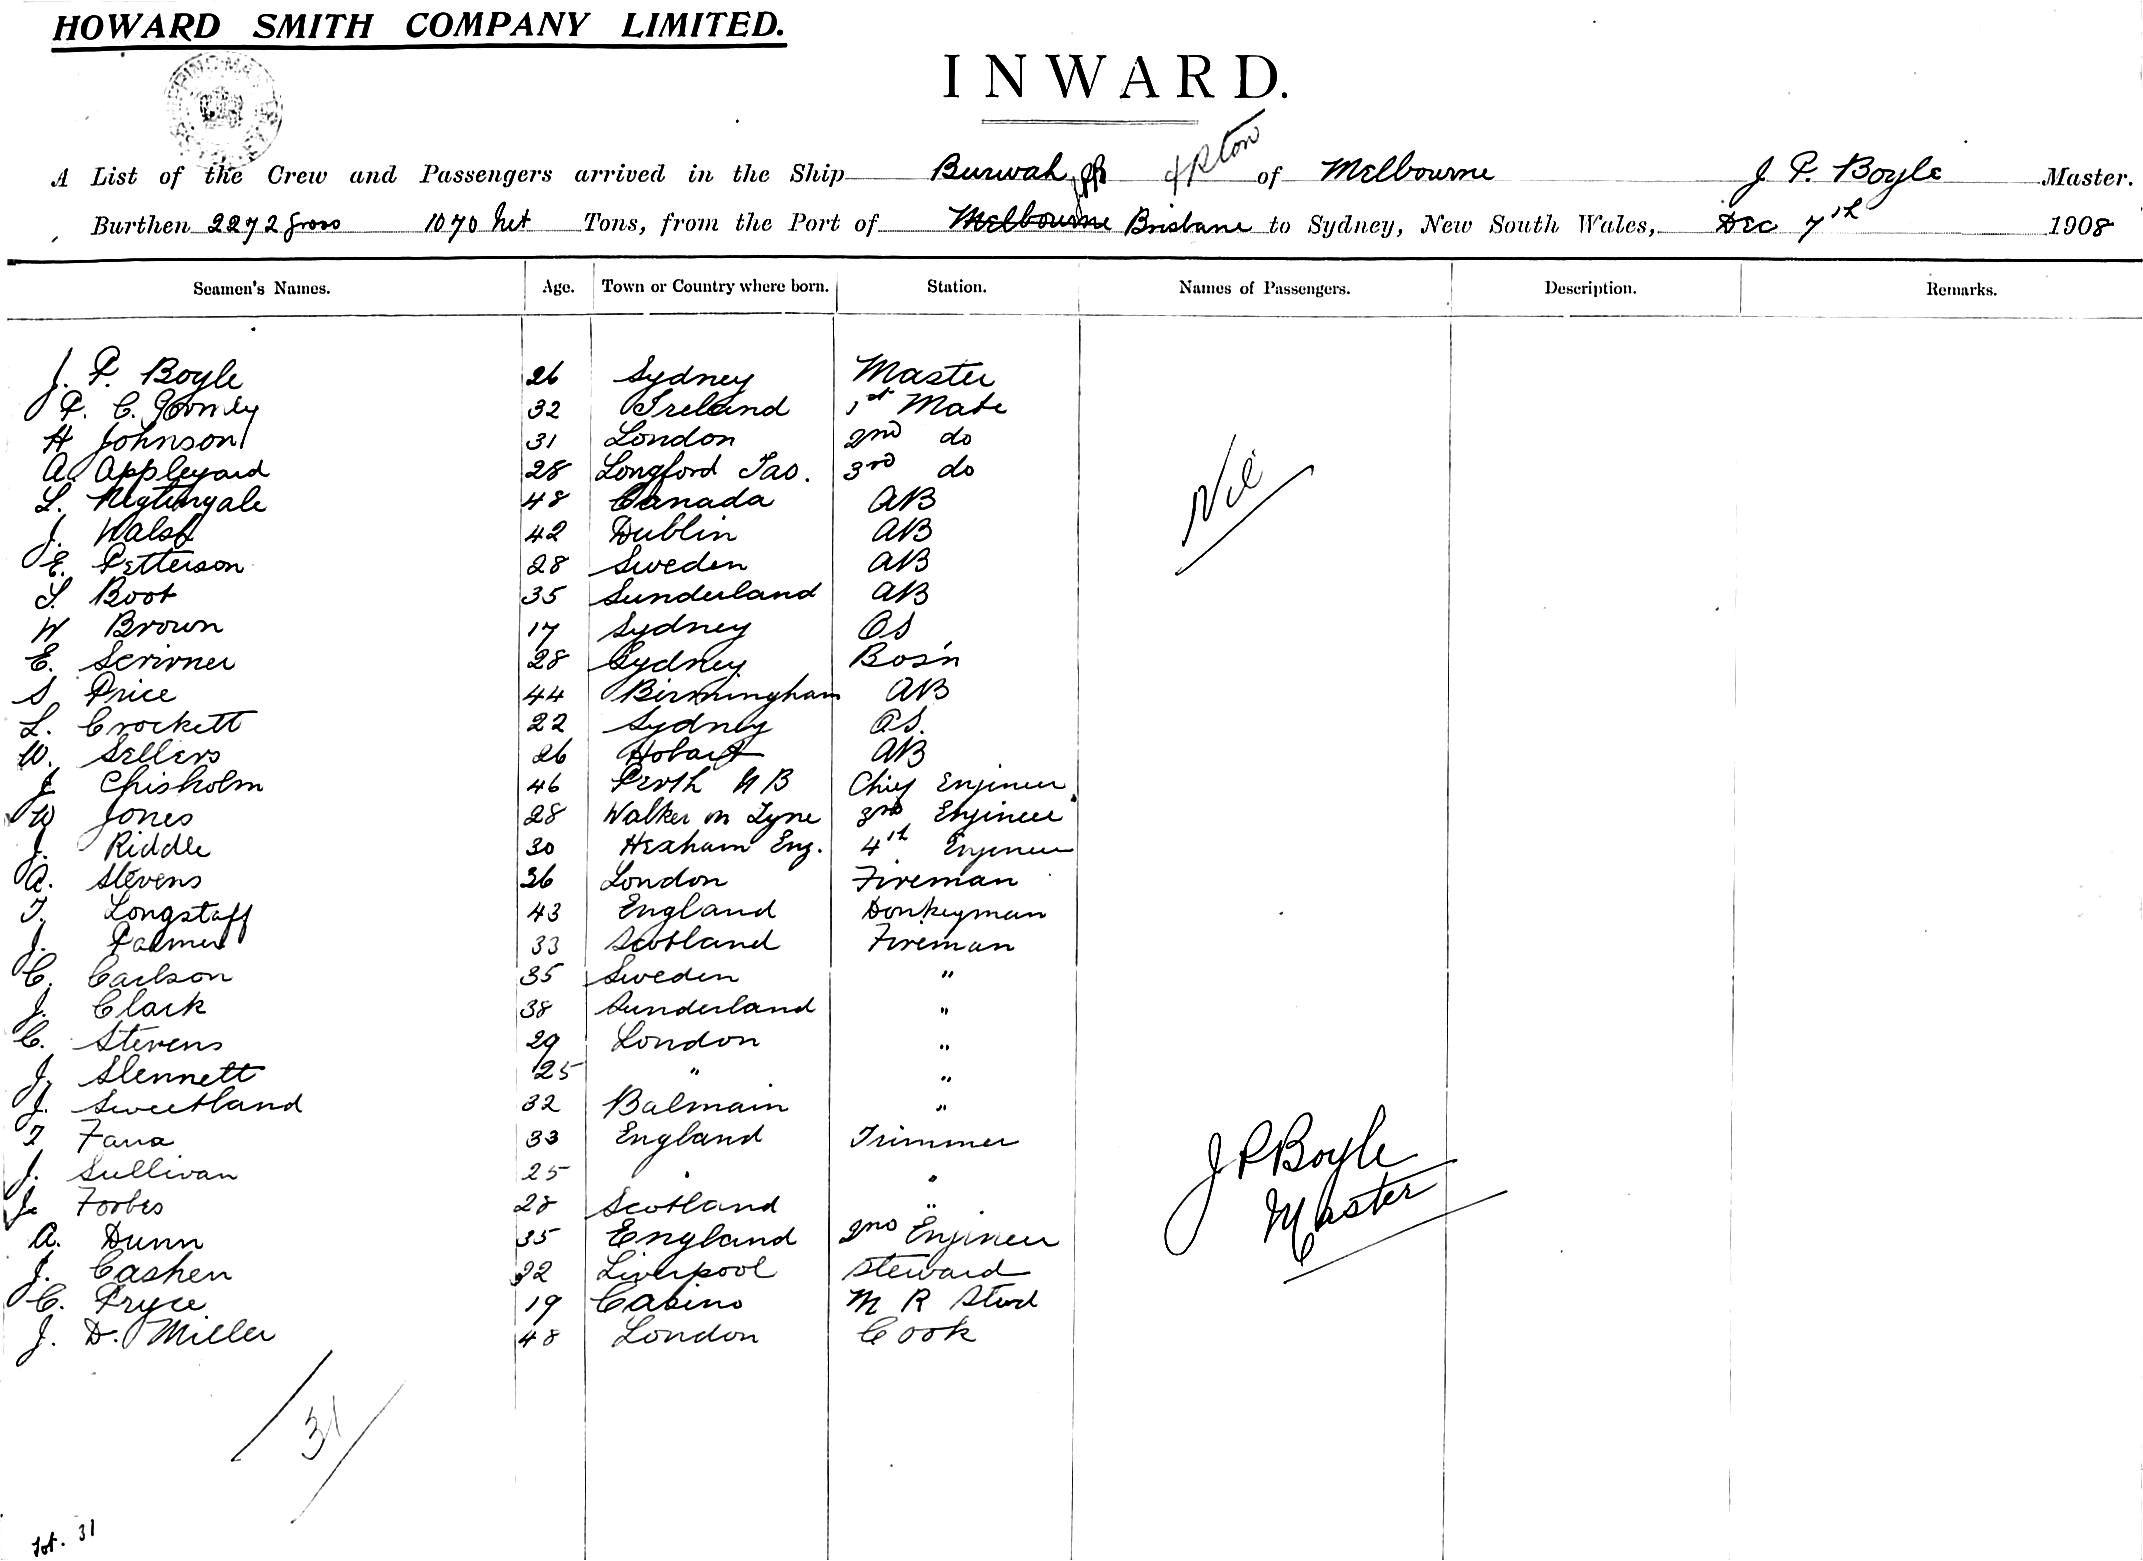 HOWARD SMITH COMPANY LIMITED.
INWARD.
A List of the Crew and Passengers arrived in the Ship Burwah of Melbourne J. P. Boyle Master.
Burthen 2272 gross 1070 net Tons, from the Port of Melbourne Brisbane to Sydney, New South Wales, Dec 7th 1908
Seamen's Names. Age. Town or Country where born. Station. Names of Passengers. Description. Remarks.
J. P. Boyle 26 Sydney Master
P. C. 32 Ireland 1st Mate
H Johnson 31 London 2nd do
A. Appleyard 28 Longford Tas. 3rd do
L. Nigtingale 48 Canada AB
Nil
J. Walsh 42 Dublin AB
E. Petterson 28 Sweden AB
S. Boot 35 Sunderland AB
W Brown 17 Sydney OS
E. Scrivner 28 Sydney Bos'n
S Price 44 Birmingham AB
L. Crockett 22 Sydney OS.
W. Sellers 26 Hobart AB
J Chisholm 46 Perth N B Chief Engineer
W Jones 28 Walker on Tyne 3rd Engineer
J. Riddle 30 Hexham Eng. 4th Engineer
A. Stevens 36 London Fireman
T. Longstaff 43 England Donkeyman
J. Palmer 33 Scotland Fireman
C. Carlson 35 Sweden "
J. Clark 38 Sunderland "
C. Stevens 29 London "
J. Slennett 25 " "
J. Sweetland 32 Balmain "
T Fana 33 England Trimmer
J. Sullivan 25 " "
J. Forbes 28 Scotland "
J P Boyle
Master
A. Dunn 35 England 2nd Engineer
J. Cashen 22 Liverpool Steward
C. Pryce 19 Casino M R Stwd
J. D. Miller 48 London Cook
31
tot. 31